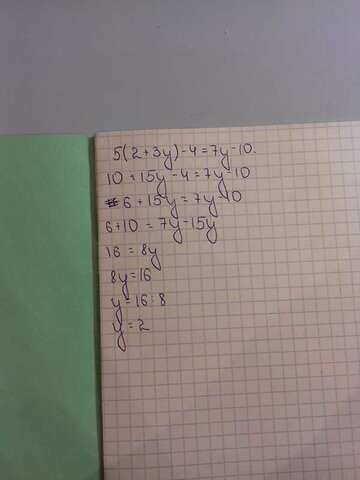 5(2+3y)-4=7y-10.
10+15y-4=7y-10
6+15y=7y-10
6+10=7y-15y
16=8y
8y=16
y=16:8
y=2